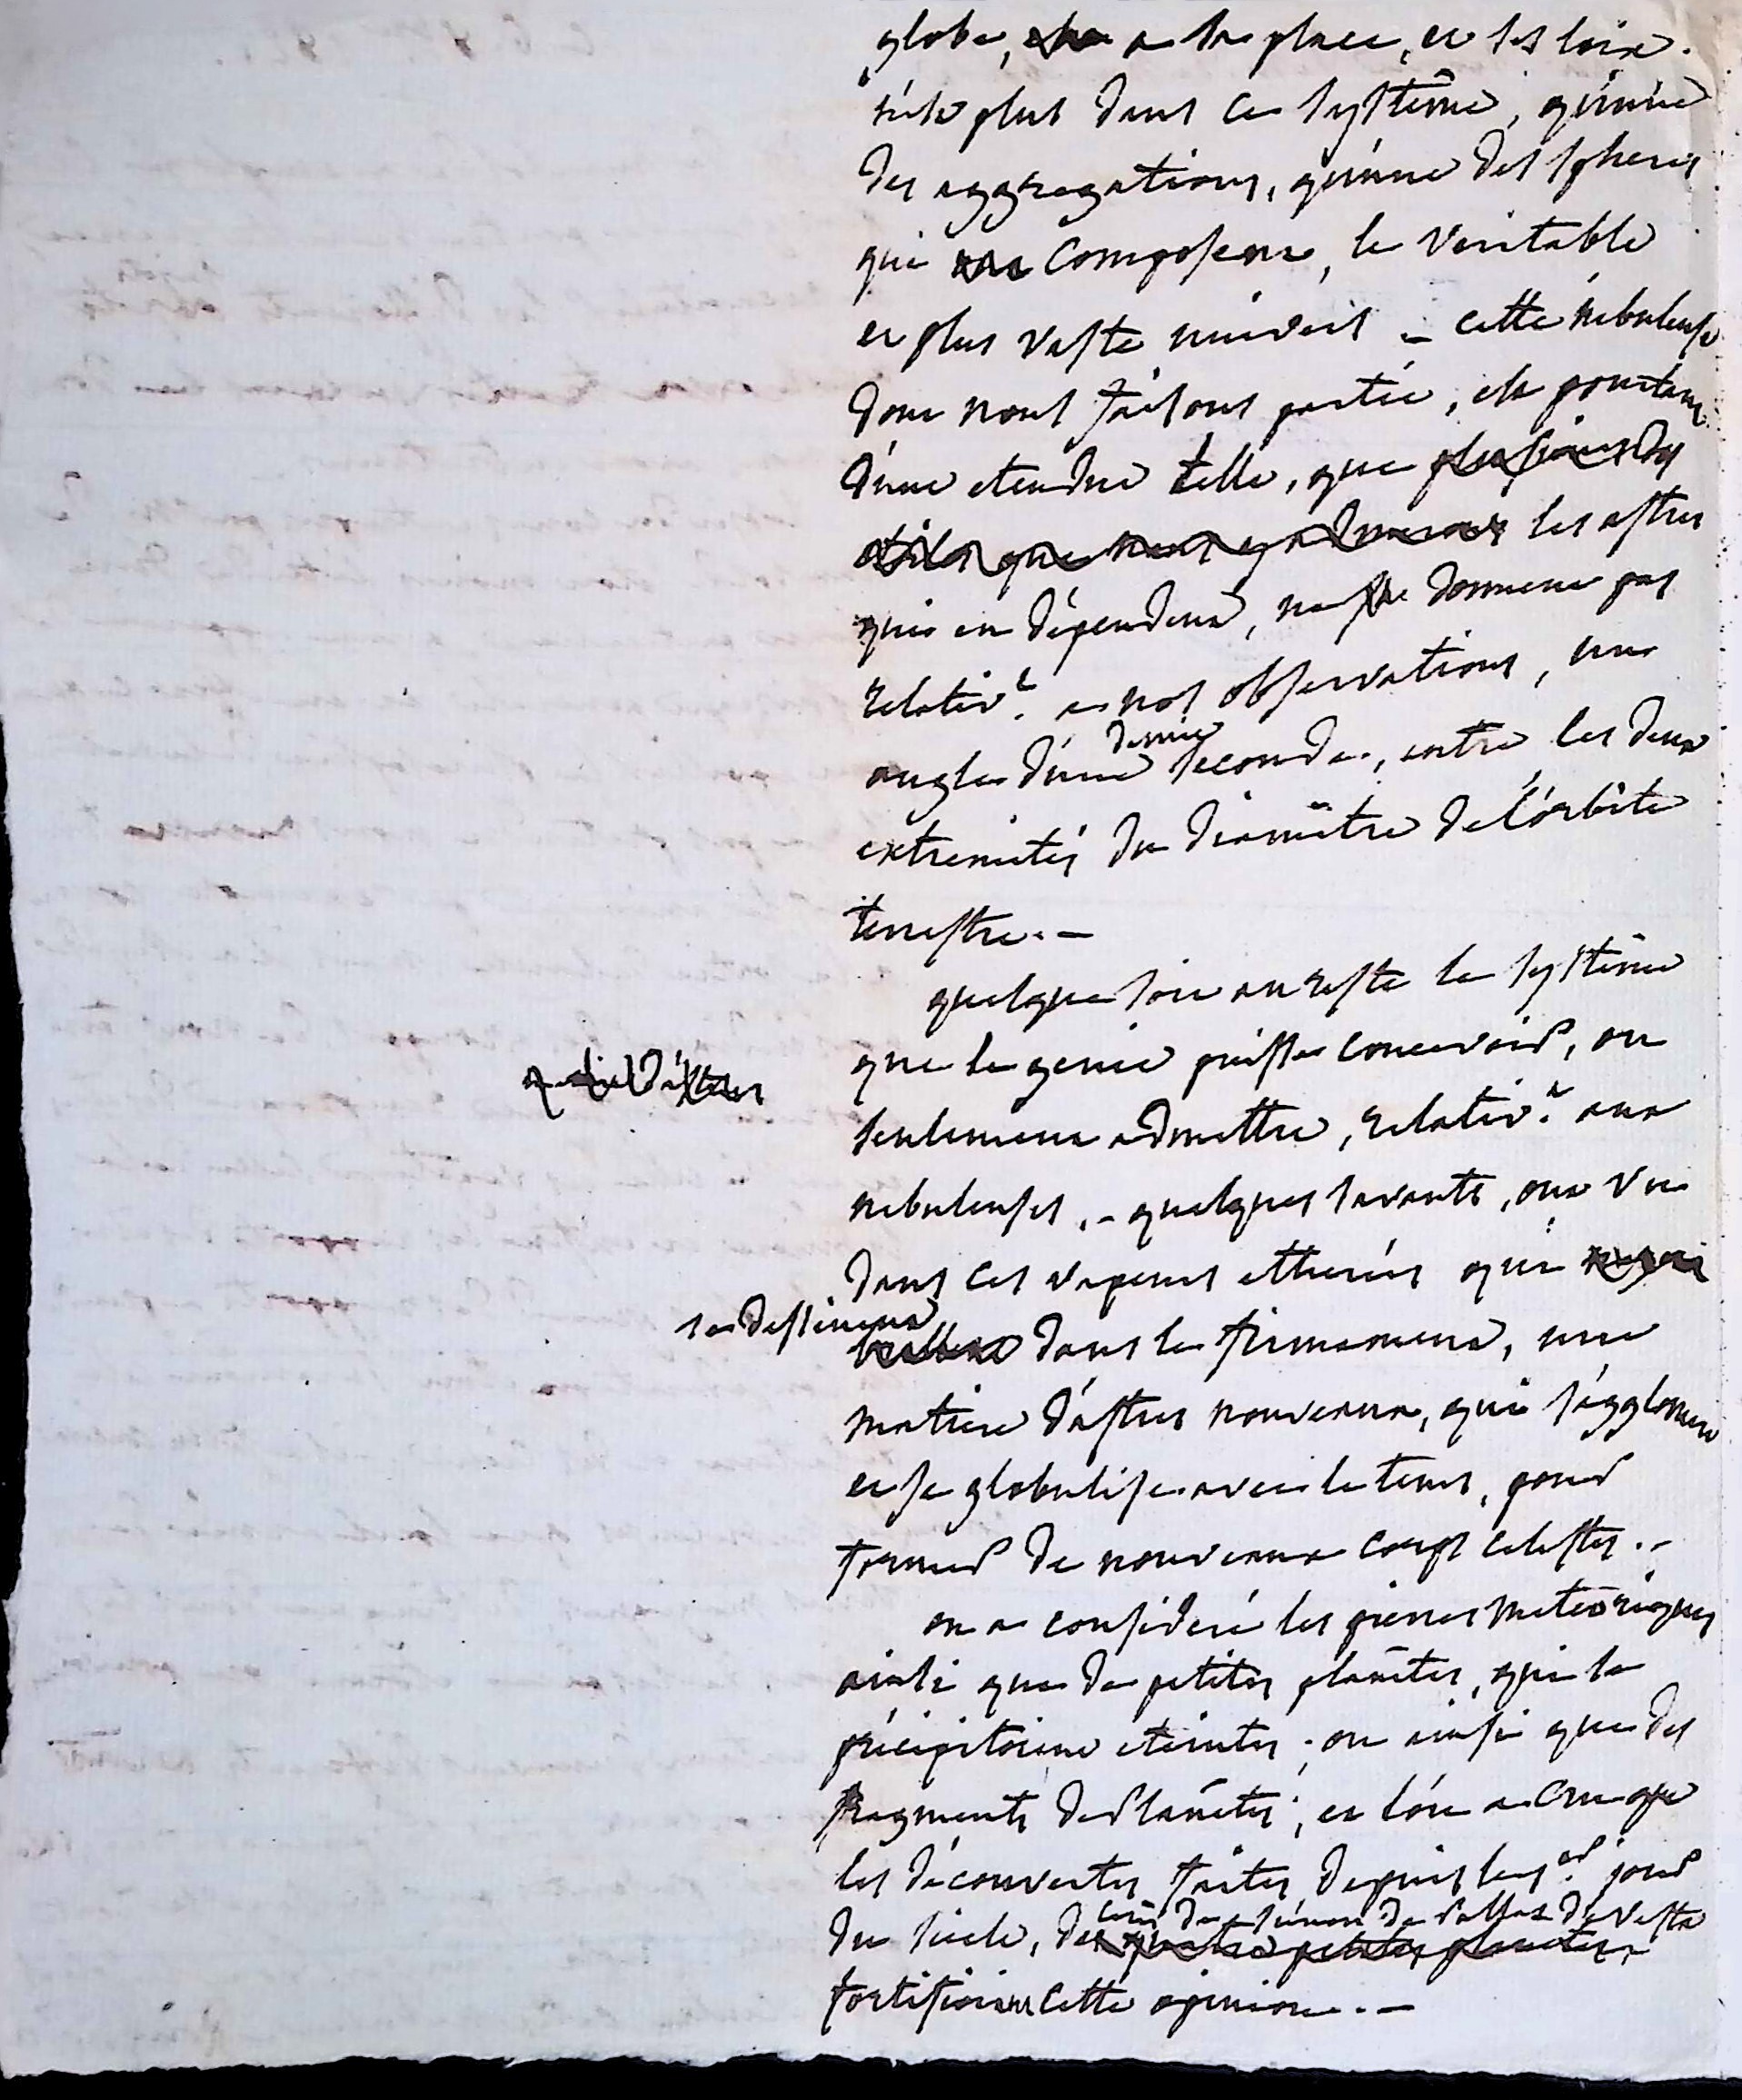 globe, a sa place, et ses loix.
n'est plus dans ce systême, qu'une
des aggregations, qu'une des spheres
qui composent, le veritable
et plus vaste univers - cette nebuleuse
dont nous faisons partie, est pourtant
d'une etendue telle, que plusieurs des
etoiles que nous y admirons les astres
qui en dépendent, ne donnent pas
relativt. a nos observations, un
angle d'une demie seconde, entre les deux
extremités du diamêtre de l'orbite
terrestre. -
quelque soit au reste le systême
que le genie puisse concevoir, ou
seulement admettre, relativt. aux
nebuleuses, - quelques savants, ont vu
dans ces vapeurs etherées qui
se dessinent dans le firmament, une
matiere d'astres nouveaux, qui s'agglomere
et se globulise avec le tems, pour
former de nouveaux corps celestes. -
on a consideré les pierres meteoriques
ainsi que de petites planêtes, qui se
précipitoient eteintes; ou ainsi que des
fragments de planêtes; et l'on a cru que
les découvertes faites depuis le per. jour
du siecle, de cerès de junon de pallas de vesta
des quatre petites planetes,
fortifioient cette opinion. -